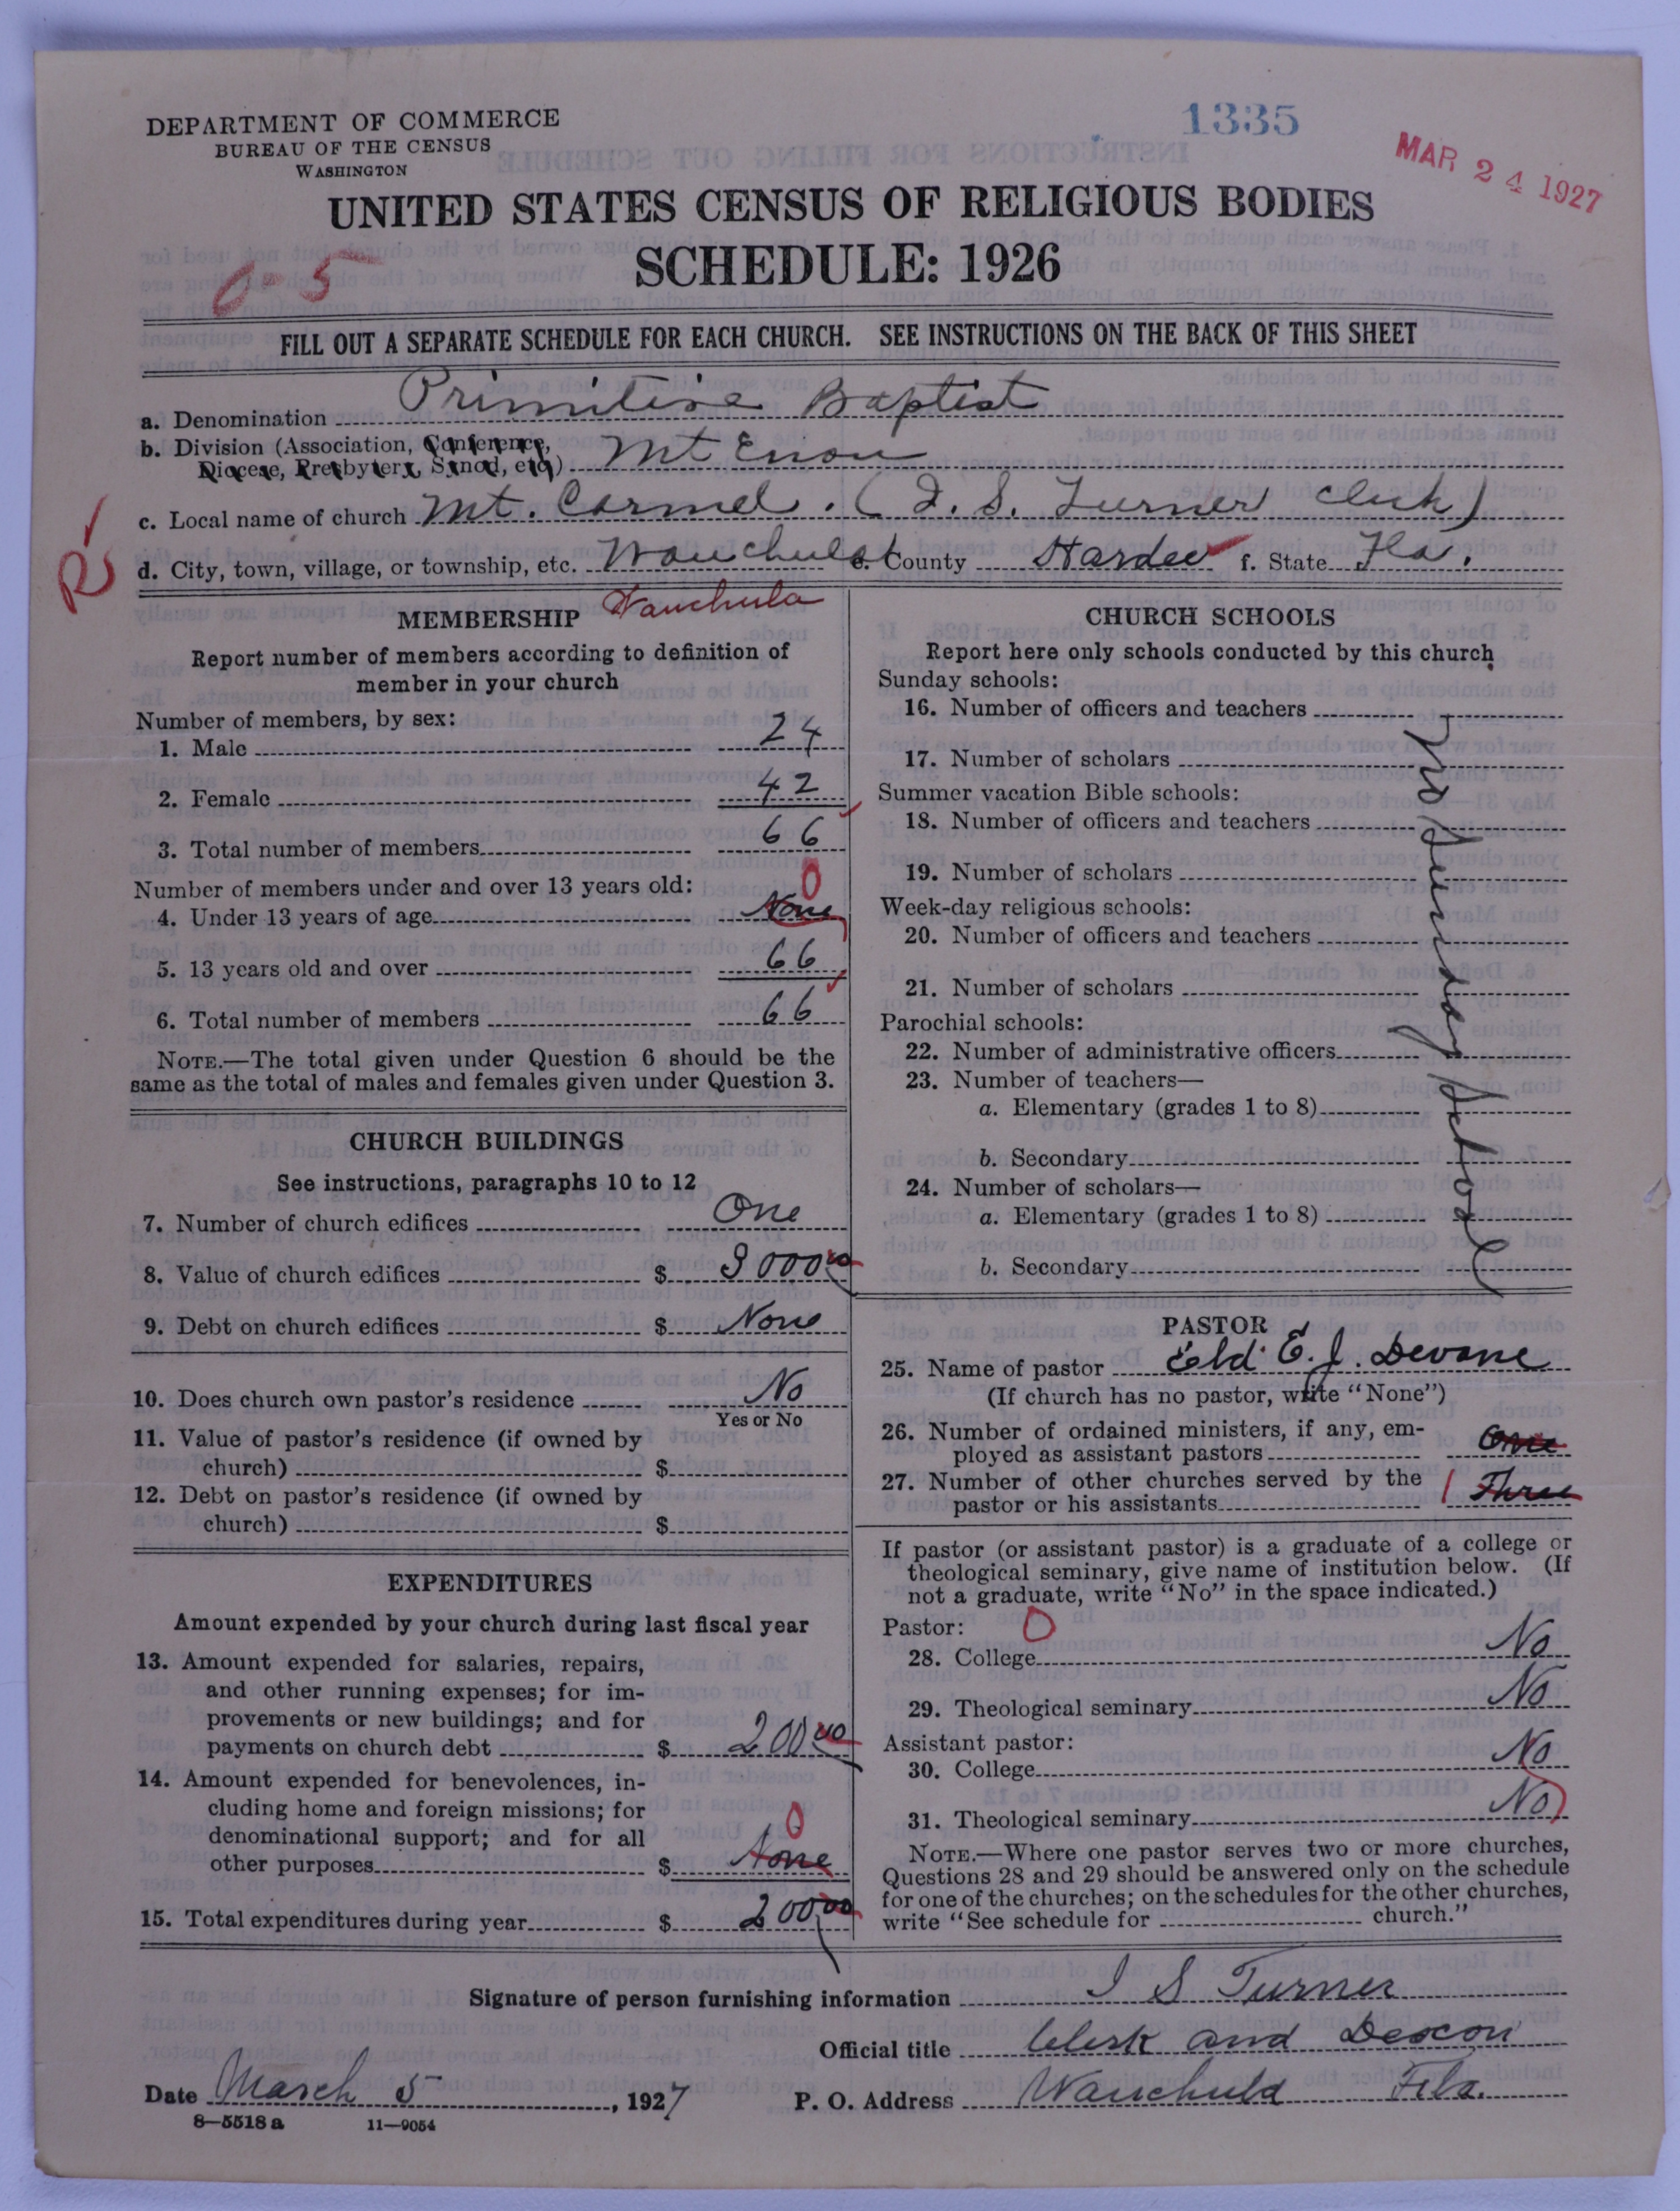 DEPARTMENT OF COMMERCE
BUREAU OF THE CENSUS
WASHINGTON
1335
MAR 24 1927
UNITED STATES CENSUS OF RELIGIOUS BODIES
SCHEDULE: 1926
0-5
FILL OUT A SEPARATE SCHEDULE FOR EACH CHURCH. SEE INSTRUCTIONS ON THE BACK OF THIS SHEET
a. Denomination Primitive Baptist
b. Division (Association, Conference,
Diocese, Presbytery, Synod, etc.) Mt Enon
c. Local name of church Mt. Carmel. (I. S. Turner Clerk)
R
d. City, town, village, or township, etc. Wauchula e. County Hardee f. State Fla.
Wauchula
MEMBERSHIP
Report number of members according to definition of
member in your church
Number of members, by sex:
1. Male 24
2. Female 42
3. Total number of members 66
Number of members under and over 13 years old: 0
4. Under 13 years of age None
5. 13 years old and over 66
6. Total number of members 66
NOTE.—The total given under Question 6 should be the
same as the total of males and females given under Question 3.
CHURCH BUILDINGS
See instructions, paragraphs 10 to 12
7. Number of church edifices One
8. Value of church edifices $ 3000 00
9. Debt on church edifices $ None
10. Does church own pastor's residence No
Yes or No
11. Value of pastor's residence (if owned by
church) $
12. Debt on pastor's residence (if owned by
church) $
EXPENDITURES
Amount expended by your church during last fiscal year
13. Amount expended for salaries, repairs,
and other running expenses; for im-
provements or new buildings; and for
payments on church debt $ 200 00
14. Amount expended for benevolences, in-
cluding home and foreign missions; for
denominational support; and for all 0
other purposes $ None
15. Total expenditures during year $ 200 00
CHURCH SCHOOLS
Report here only schools conducted by this church
Sunday schools:
16. Number of officers and teachers
17. Number of scholars
Summer vacation Bible schools:
18. Number of officers and teachers
19. Number of scholars
Week-day religious schools:
20. Number of officers and teachers
21. Number of scholars
Parochial schools:
22. Number of administrative officers
23. Number of teachers—
a. Elementary (grades 1 to 8)
b. Secondary
24. Number of scholars—
a. Elementary (grades 1 to 8)
b. Secondary
No Sunday School
PASTOR
25. Name of pastor Eld. E. J. Devane
(If church has no pastor, write "None")
26. Number of ordained ministers, if any, em-
ployed as assistant pastors One
27. Number of other churches served by the
pastor or his assistants Three
If pastor (or assistant pastor) is a graduate of a college or
theological seminary, give name of institution below. (If
not a graduate, write "No" in the space indicated.)
Pastor: 0
28. College No
29. Theological seminary No
Assistant pastor:
30. College No
31. Theological seminary No
NOTE.—Where one pastor serves two or more churches,
Questions 28 and 29 should be answered only on the schedule
for one of the churches; on the schedules for the other churches,
write "See schedule for church."
Signature of person furnishing information I S Turner
Official title Clerk and Deacon
Date March 5, 1927 P. O. Address Wauchula Fla.
8—5518 a 11—9054